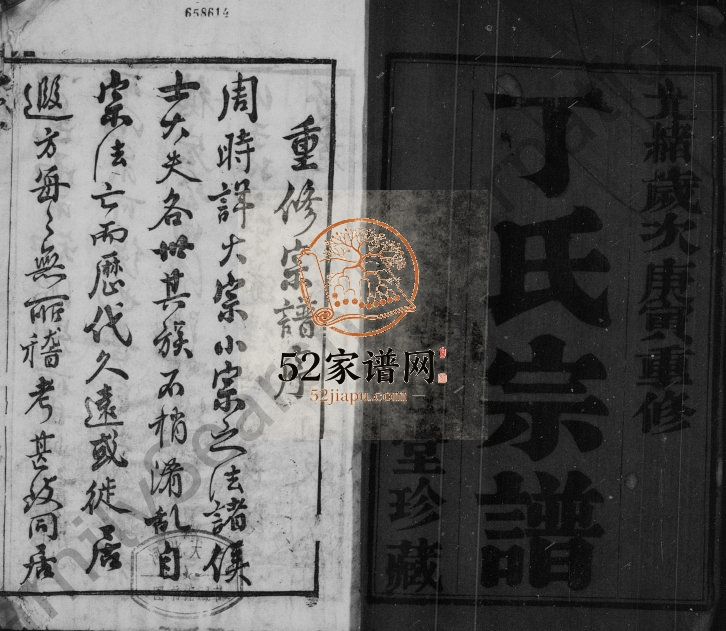 658614
光緒歲次庚寅重修
丁氏宗譜
堂珍藏
重修宗譜序
周時詳大宗小宗之法諸侯
士大夫各世其族不稍淆亂自
宗法亡而歷代久遠或徙居
遐方每々無所稽考甚致同居
52家谱网
52jiapu.com